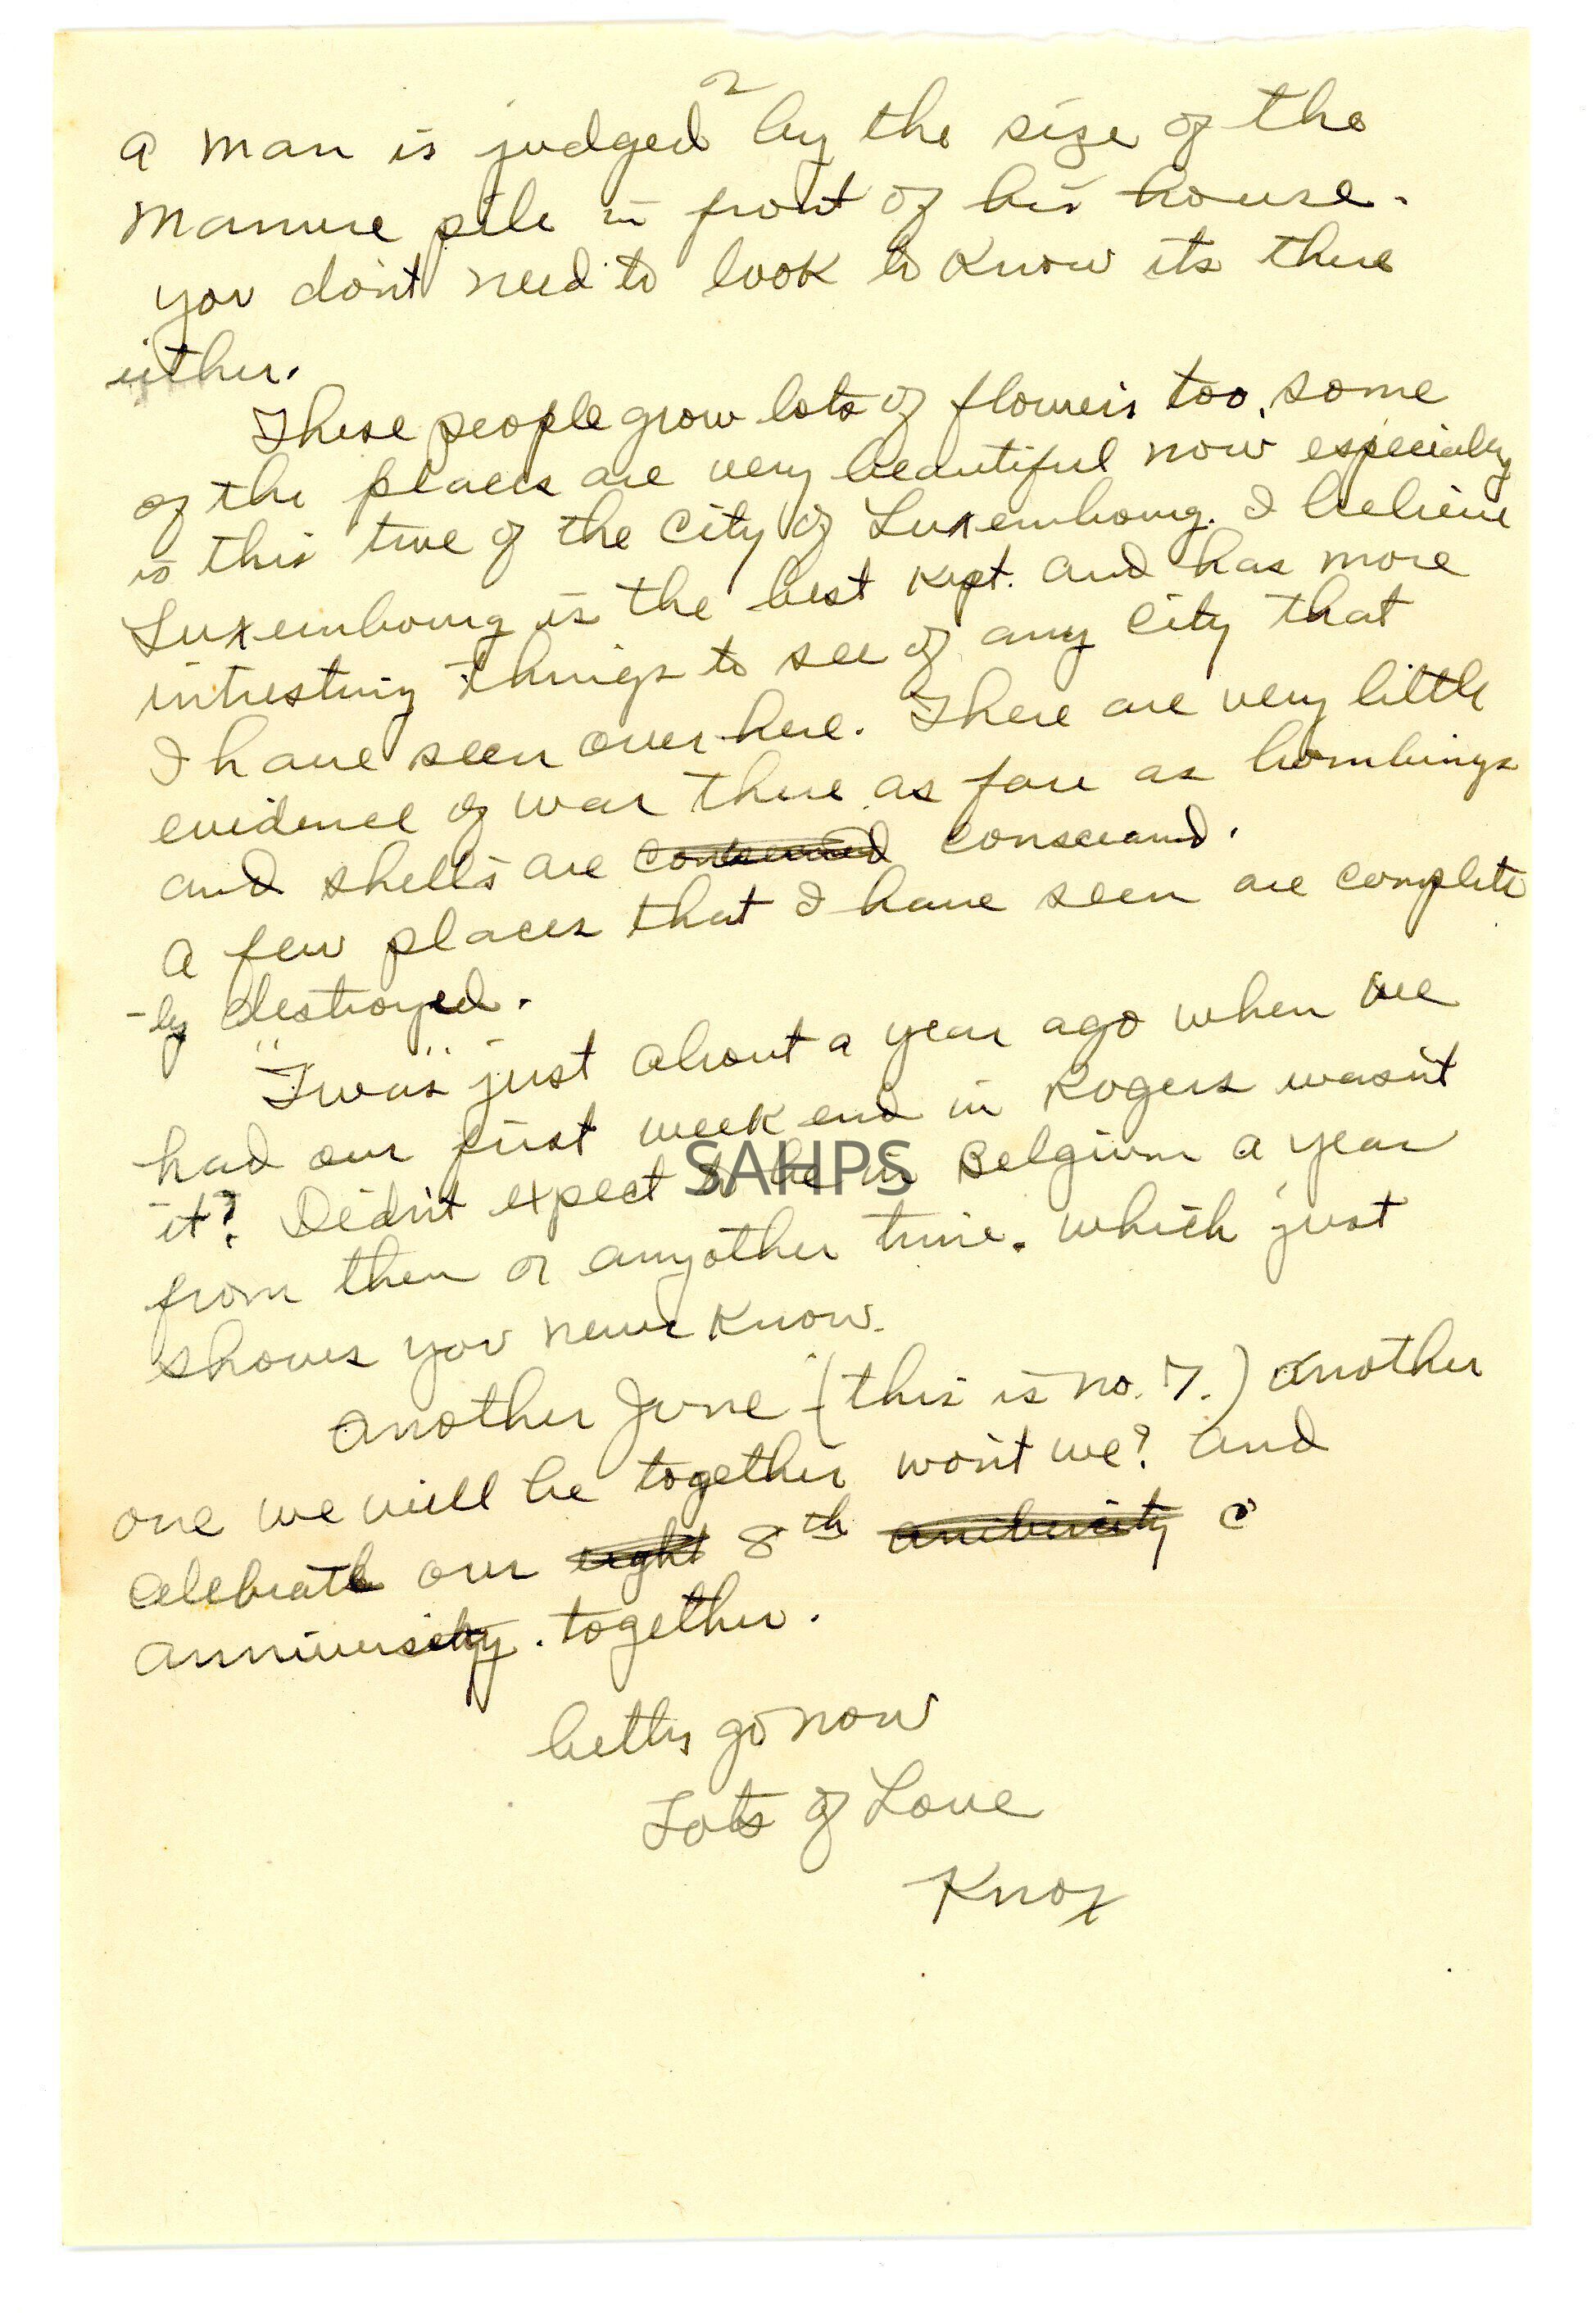 2
a man is judged by the size of the
manure pile in front of his house.
you don't need to look to know its there
either.
These people grow lots of flowers too, some
of the places are very beautiful now especialy
is this true of the City of Luxembourg. I believe
Luxembourg is the best kept. and has more
intresting things to see of any City that
I have seen over here. There are very little
evidence of war there as fare as bombings
and shells are conserned
A few places that I have seen are complete
-ly destroyed.
"Twas" just about a year ago when we
had our first week end in Rogers wasn't
it? Didn't expect to be in Belgium a year
SAHPS
from then or anyother time. which just
shows you never know.
another June - (this is no. 7.) another
one we will be together won't we? and
celebrate our eight 8th c
anniversity. together.
better go now
Lots of Love
Knox